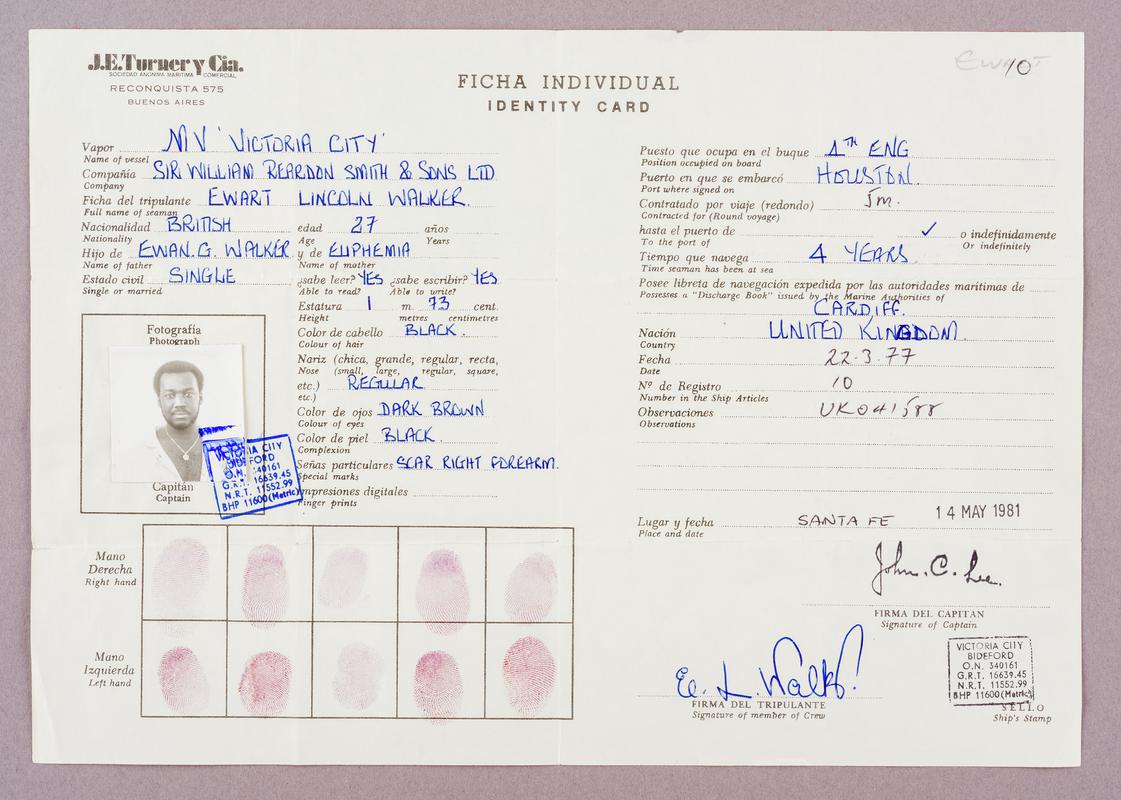 J.E.Turner y Cia.
SOCIEDAD ANONIMA MARITIMA COMERCIAL
RECONQUISTA 575
BUENOS AIRES
FICHA INDIVIDUAL
IDENTITY CARD
10
Vapor MV 'VICTORIA CITY'
Name of vessel
Compañía SIR WILLIAM REARDON SMITH & SONS LTD
Company
Ficha del tripulante EWART LINCOLN WALKER.
Full name of seaman
Nacionalidad BRITISH edad 27 años
Nationality Age Years
Hijo de EWAN.G. WALKER y de EUPHEMIA
Name of father Name of mother
Estado civil SINGLE ¿sabe leer? YES ¿sabe escribir? YES
Single or married Able to read? Able to write?
Estatura 1 m. 73 cent.
Height metres centimetres
Color de cabello BLACK.
Colour of hair
Nariz (chica, grande, regular, recta,
Nose (small, large, regular, square,
etc.) REGULAR
etc.)
Color de ojos DARK BROWN
Colour of eyes
Color de piel BLACK.
Complexion
Señas particulares SCAR RIGHT FOREARM.
Special marks
Impresiones digitales
Finger prints
Fotografía
Photograph
VICTORIA CITY
BIDEFORD
O.N. 340161
G.R.T. 16639.45
N.R.T. 11552.99
BHP 11600 (Metric)
Capitán
Captain
Mano
Derecha
Right hand
Mano
Izquierda
Left hand
Puesto que ocupa en el buque 4TH ENG
Position occupied on board
Puerto en que se embarcó HOUSTON.
Port where signed on
Contratado por viaje (redondo) 5m.
Contracted for (Round voyage)
hasta el puerto de ✓ o indefinidamente
To the port of Or indefinitely
Tiempo que navega 4 YEARS.
Time seaman has been at sea
Posee libreta de navegación expedida por las autoridades marítimas de
Possesses a "Discharge Book" issued by the Marine Authorities of
CARDIFF.
Nación UNITED KINGDOM.
Country
Fecha 22-3-77
Date
Nº de Registro 10
Number in the Ship Articles
Observaciones UK041588
Observations
Lugar y fecha SANTA FE 14 MAY 1981
Place and date
John. C. Lee.
FIRMA DEL CAPITAN
Signature of Captain
E. L. Walker
FIRMA DEL TRIPULANTE
Signature of member of Crew
VICTORIA CITY
BIDEFORD
O.N. 340161
G.R.T. 16639.45
N.R.T. 11552.99
BHP 11600 (Metric)
SELLO
Ship's Stamp